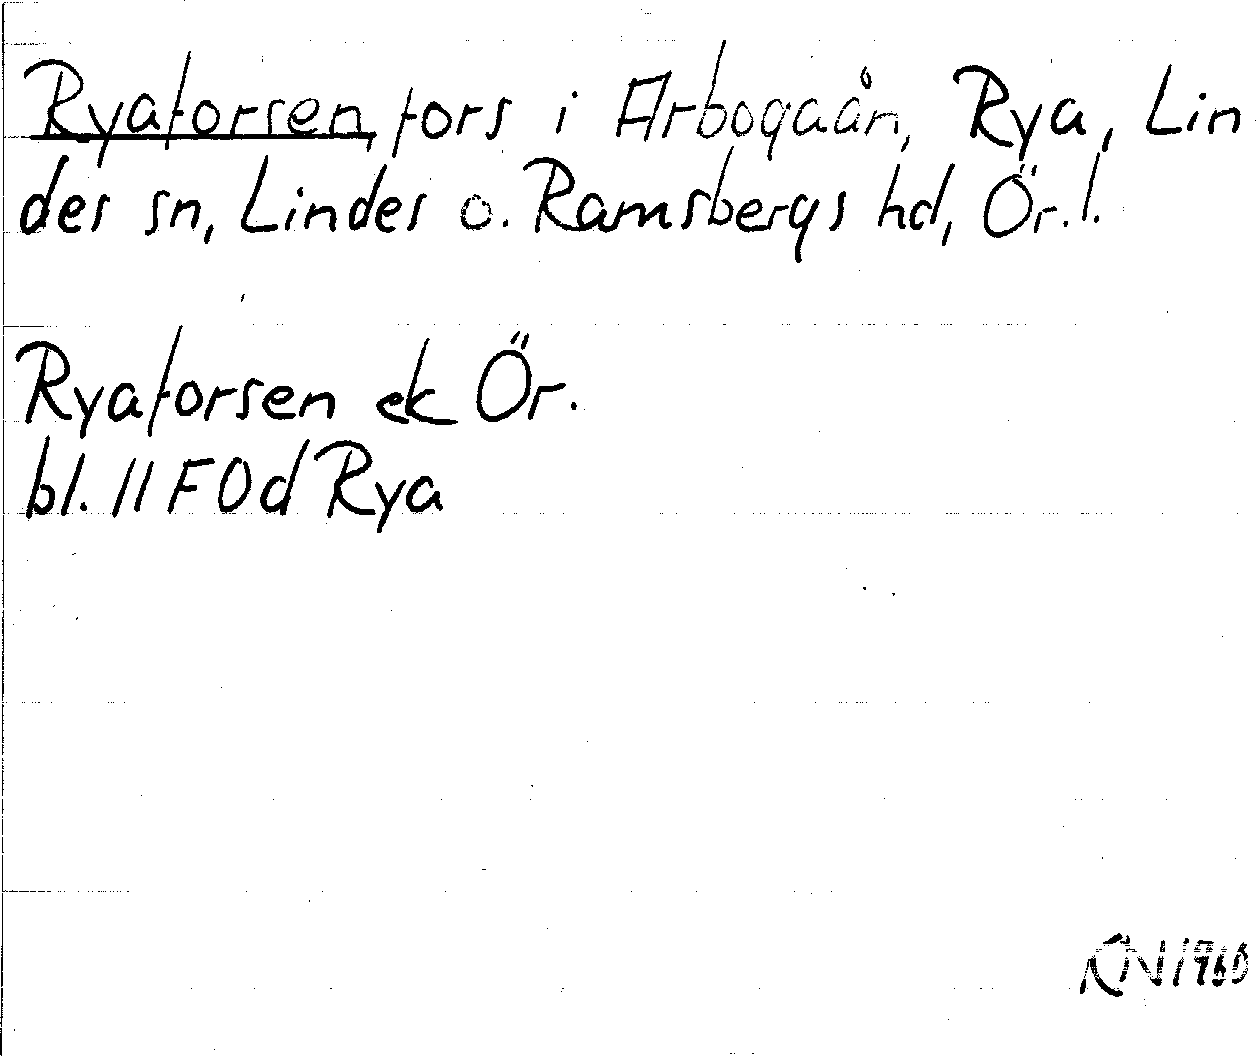 Ryaforsen, fors i Arbogaån, Rya, Lin
des sn, Lindes o. Ramsbergs hd, Ör. l.
Ryaforsen ek Ör.
bl. 11 F 0d Rya